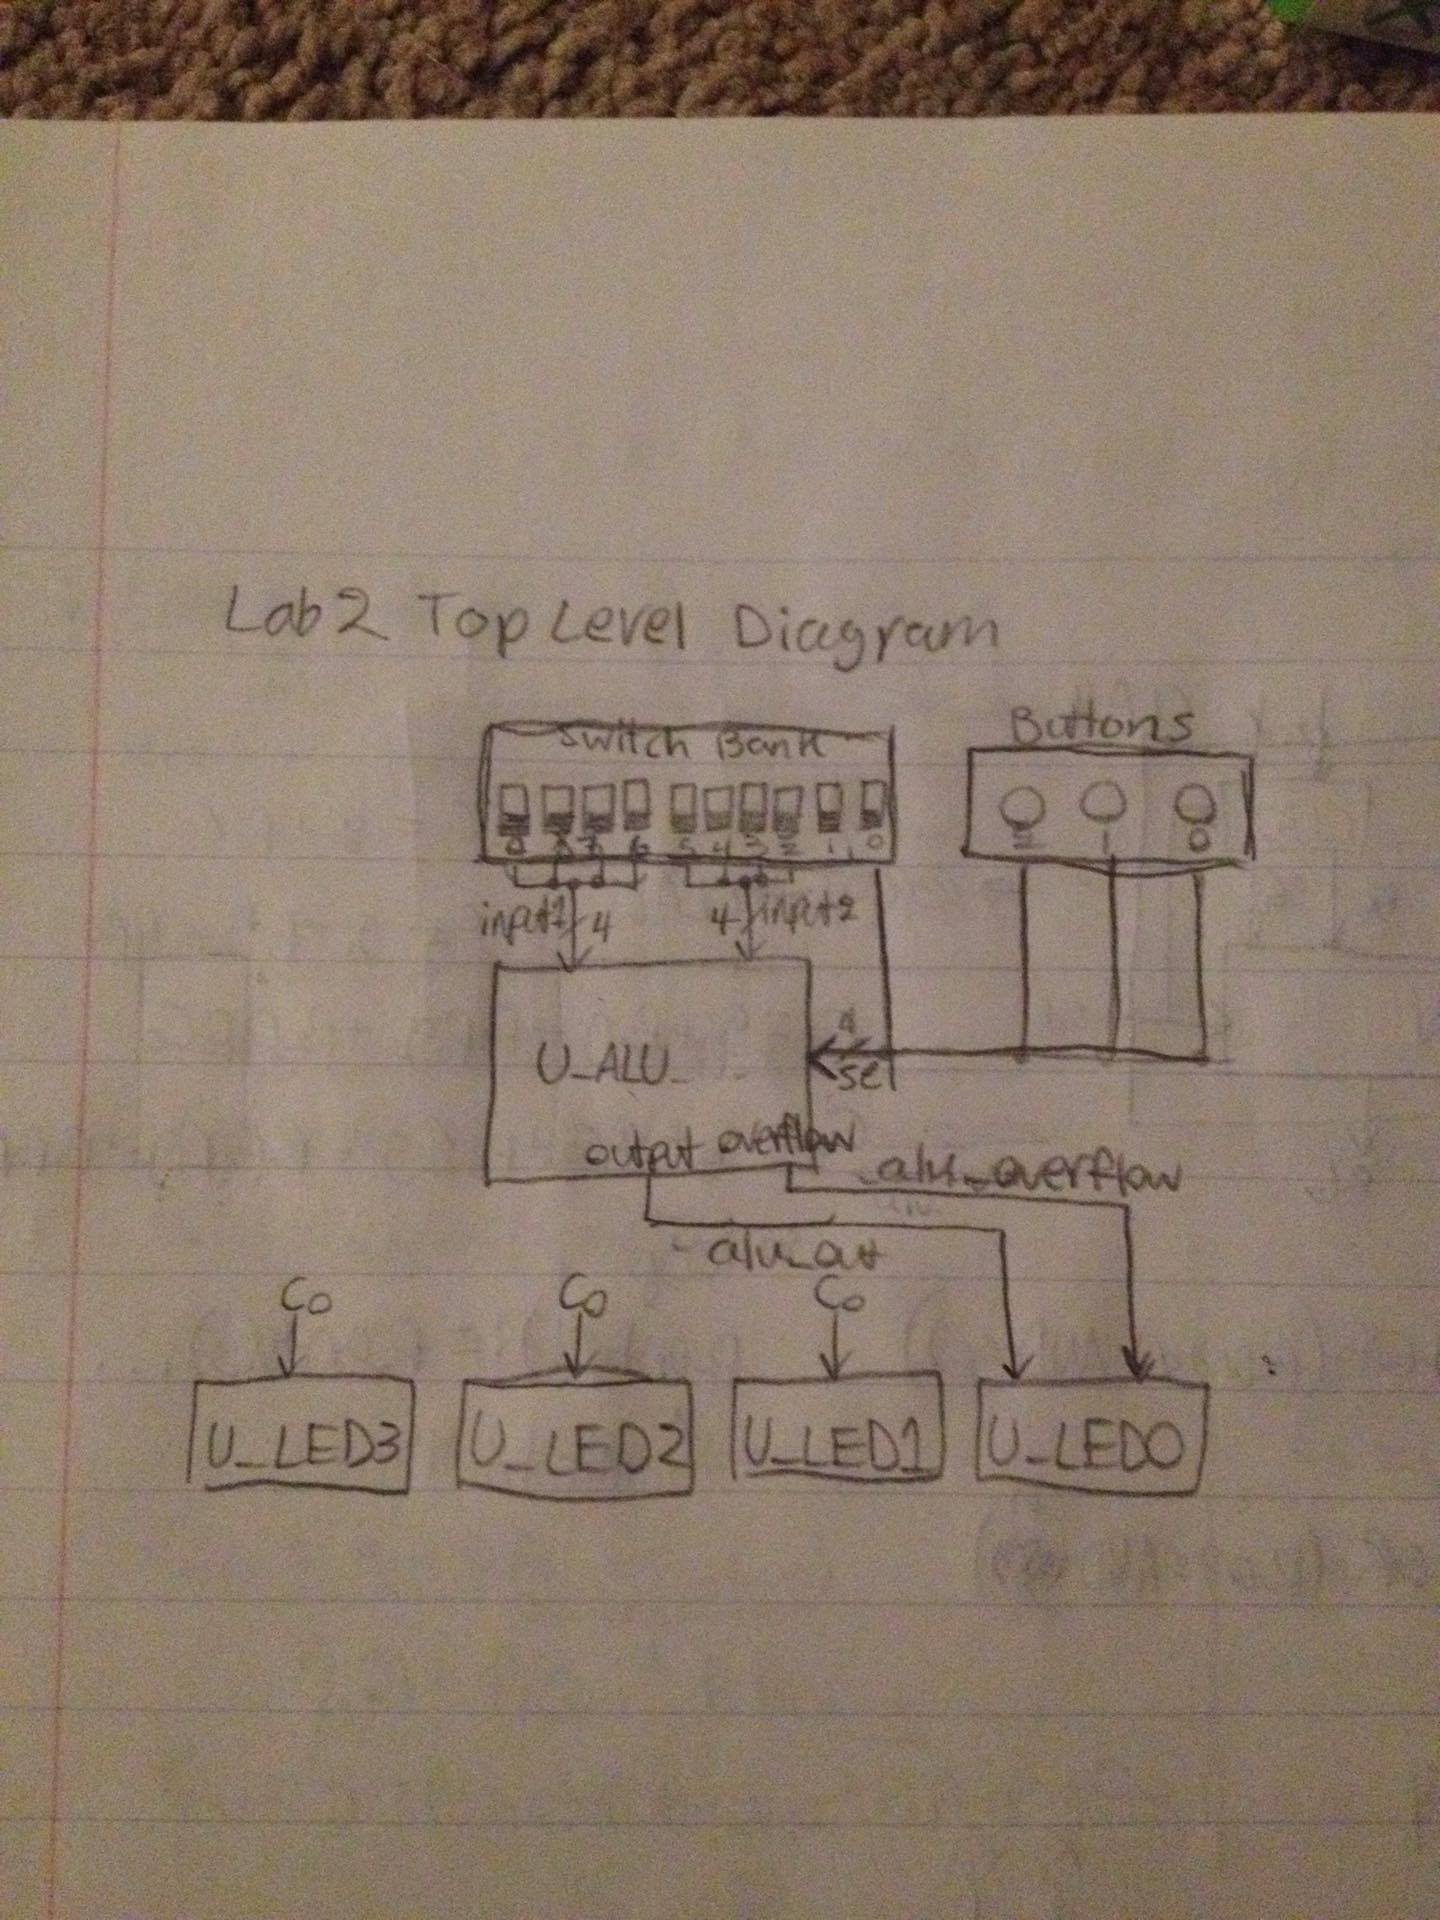 Lab 2 Top Level Diagram
Buttons
Switch Bank
9 8 7 6 5 4 3 2 1 0
2 1 0
input1 4 4 input2
4
sel
U_ALU
output overflow
alu_overflow
alu_out
Co Co Co
U_LED3 U_LED2 U_LED1 U_LED0